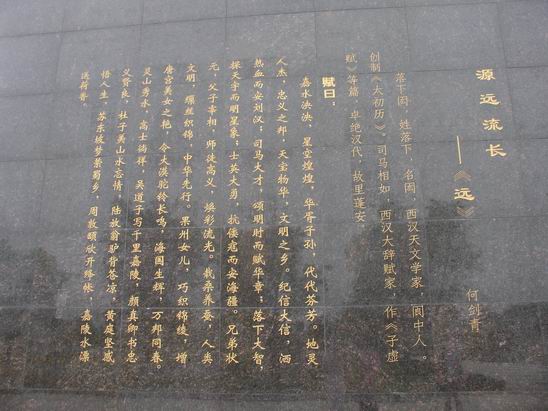 源远流长
——《远》
何剑青
落下闳，姓落下，名闳，西汉天文学家，阆中人。
创制《太初历》。司马相如，西汉大辞赋家，作《子虚
赋》等篇，卓绝汉代，故里蓬安。
赋曰：
嘉水泱泱，星空煌煌，华胥子孙，代代芬芳。地灵
人杰，忠义之邦，天宝物华，文明之乡。纪信大信，洒
热血而安刘汉；司马大才，颂明时而赋华章；落下大智，
探天宇而明星象；士英大勇，抗倭寇而安海疆。兄弟状
元，父子宰相，师徒高义，焕彩流光。栽桑养蚕，人类
文明，缫丝织锦，中华先行。果州女儿，巧织锦绫，增
唐宫美女之艳，令大漠驼铃长鸣，海国生辉，万邦同春。
灵山秀水，高士徜徉，吴道子写千里嘉陵，颜真卿书忠
义贤良，杜子美山水忘情，陆放翁驴背答凉，黄庭坚感
悟人生，苏东坡梦萦蜀乡，周敦颐欣开绛帐，嘉陵水漾
送荷香。